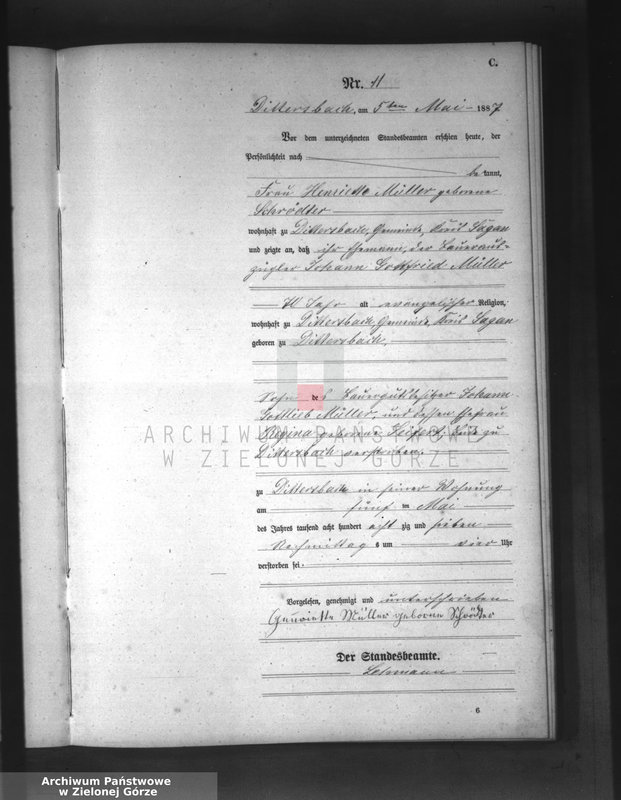 C.
Nr. 11
Dittersbach, am 5ten Mai 1887
Vor dem unterzeichneten Standesbeamten erschien heute, der
Persönlichkeit nach
bekannt,
Frau Henriette Müller geborene
Schrödter
wohnhaft zu Dittersbach, Gemeinde, Kreis Sagan
und zeigte an, daß ihr Ehemann, der Bauerauszügler
Johann Gottfried Müller
Jahr alt evangelischer Religion,
wohnhaft zu Dittersbach, Gemeinde, Kreis Sagan
geboren zu Dittersbach,
Sohn des Bauergutsbesitzer Johann
Gottlieb Müller, und dessen Ehefrau
Regina geborene Seifert, beide zu
Dittersbach verstorben.
zu Dittersbach in seiner Wohnung
am fünf ten Mai
des Jahres tausend acht hundert acht zig und sieben
Nachmittags um vier Uhr
verstorben sei.
Vorgelesen, genehmigt und unterschrieben
Henriette Müller geborne Schrödter
Der Standesbeamte.
Lehmann
6
ARCHIWUM PAŃSTWOWE
W ZIELONEJ GÓRZE
Archiwum Państwowe
w Zielonej Górze